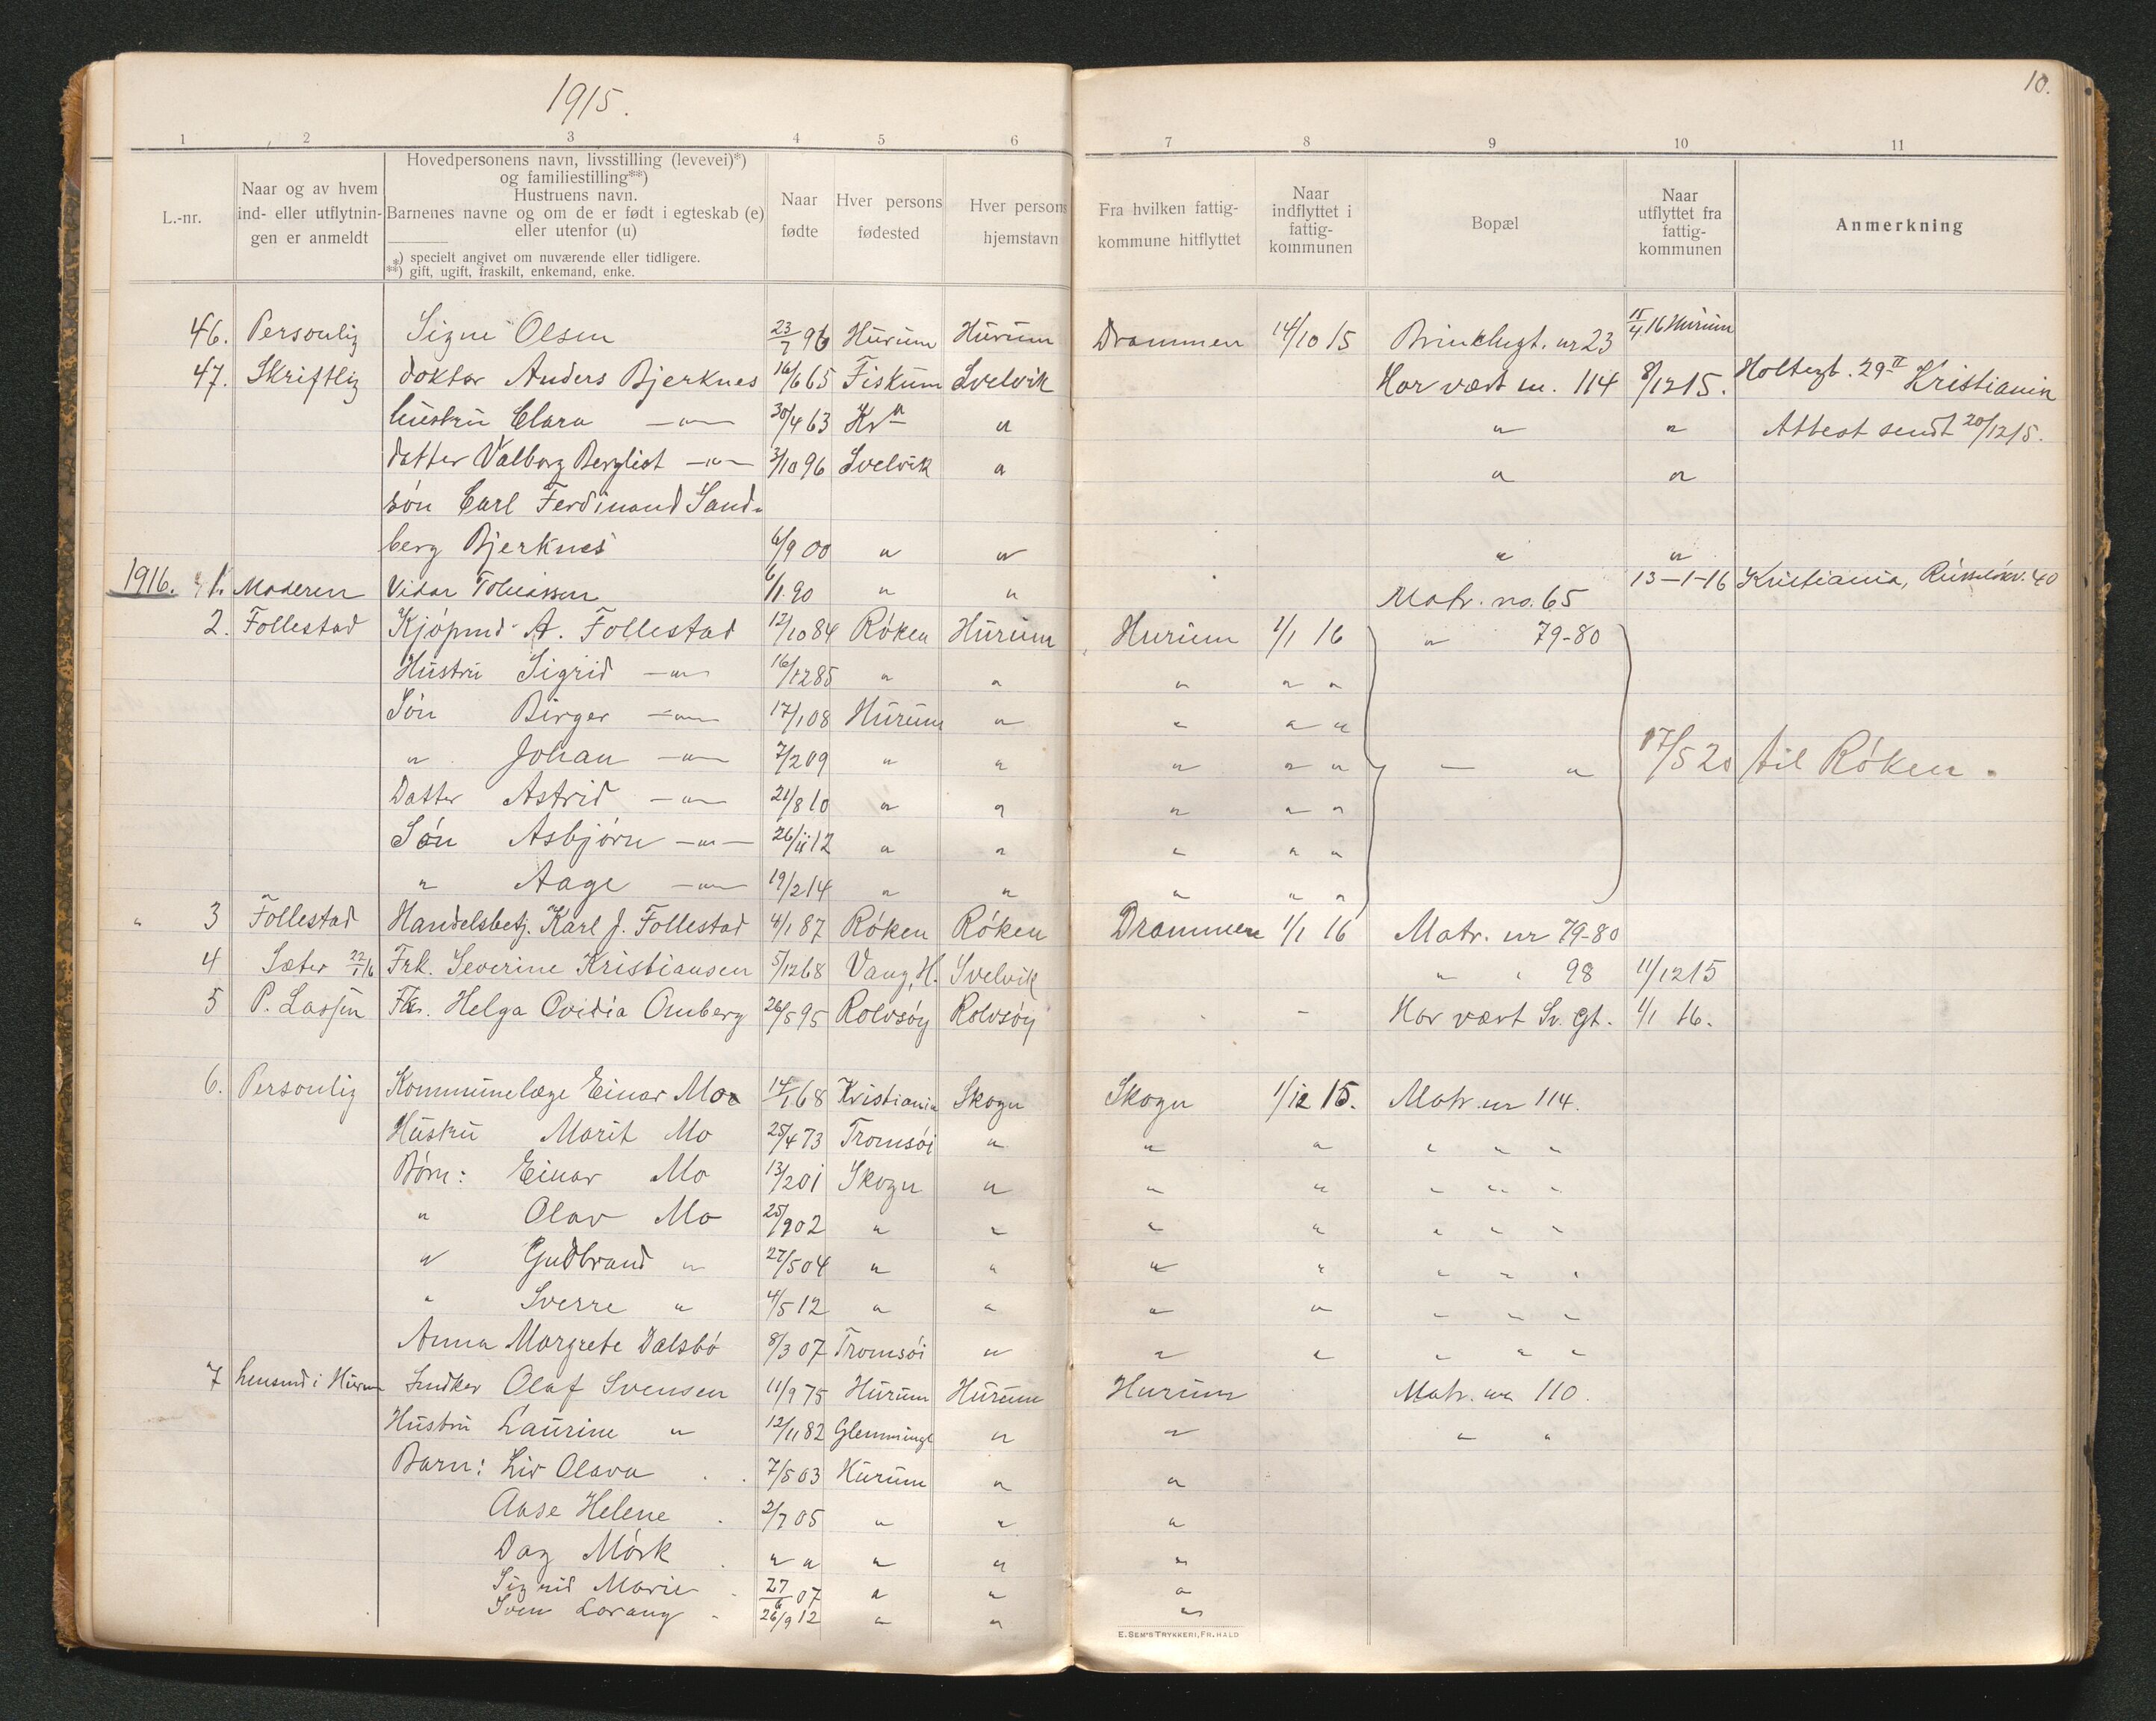 1915.
10.
1 2 3 4 5 6 7 8 9 10 11
L.-nr.
Naar og av hvem
ind- eller utflytnin-
gen er anmeldt
Hovedpersonens navn, livsstilling (levevei)*)
og familiestilling**)
Hustruens navn.
Barnenes navne og om de er født i egteskab (e)
eller utenfor (u)
*) specielt angivet om nuværende eller tidligere.
**) gift, ugift, fraskilt, enkemand, enke.
Naar
fødte
Hver persons
fødested
Hver persons
hjemstavn
Fra hvilken fattig-
kommune hitflyttet
Naar
indflyttet i
fattig-
kommunen
Bopæl
Naar
utflyttet fra
fattig-
kommunen
Anmerkning
46. Personlig Signe Olsen 23/7 96 Hurum Hurum Drammen 14/10 15 nr 23 15/4 16 Hurum
47. Skriftlig doktor Anders Bjerknes 16/6 65 Fiskum Svelvik Har vært m. 114 8/12 15. Holtegt. 29 II Kristiania
hustru Clara —"— 30/4 63 Kr a " " " Attest sendt 20/12 15.
datter Valborg Bergliot —"— 3/10 96 Svelvik " " "
søn Carl Ferdinand Sand-
berg Bjerknes 6/9 00 " " " "
1916. 1. Moderen Vidar Tobiassen 6/1 90 " " Matr. no. 65 13-1-16 Kristiania, 40
2. Follestad Kjøpmd A. Follestad 12/10 84 Røken Hurum Hurum 1/1 16 " 79-80
Hustru Sigrid —"— 16/12 85 " " " " "
Søn Birger —"— 17/1 08 Hurum " " " "
" Johan —"— 7/2 09 " " " " " — " 17/5 20 til Røken.
Datter Astrid —"— 21/8 10 " " " " "
Søn Asbjørn —"— 26/11 12 " " " " "
" Aage —"— 19/2 14 " " " " "
" 3 Follestad Handelsbetj. Karl J. Follestad 4/1 87 Røken Røken Drammen 1/1 16 Matr. nr 79-80
4 Sæter 22/1 16 Frk. Severine Kristiansen 5/12 68 Vang, H. Svelvik " " 98 11/12 15
5 P. Lassen Helga Ovidia Omberg 26/5 95 Rolvsøy Rolvsøy — Har vært Sv. gt. 1/1 16.
6. Personlig Kommunelæge Einar Mo 14/1 68 Kristiania Skogn Skogn 1/12 15. Matr. nr 114.
Hustru Marit Mo 25/4 73 Tromsøi " " " " " "
Børn: Einar Mo 13/2 01 Skogn " " " " " "
" Olav Mo 25/9 02 " " " " " " "
" Gudbrand " 27/5 04 " " " " " " "
" Sverre " 4/5 12 " " " " " " "
Anna Margrete Dalsbø 8/3 07 Tromsøi " " " " " "
7 Lensmd i Hurum Snedker Olaf Svensen 11/9 75 Hurum Hurum Hurum Matr. nr 110.
Hustru Laurine " 12/11 82 Glemminge " " " "
Barn: Liv Olava 7/5 03 Hurum " "
Aase Helene 2/7 05 " " "
Dag Mørk " " " " "
Sigrid Marie 27/6 07 " " "
Sven Lorang 26/9 12 " " "
E. SEM'S TRYKKERI, FR. HALD